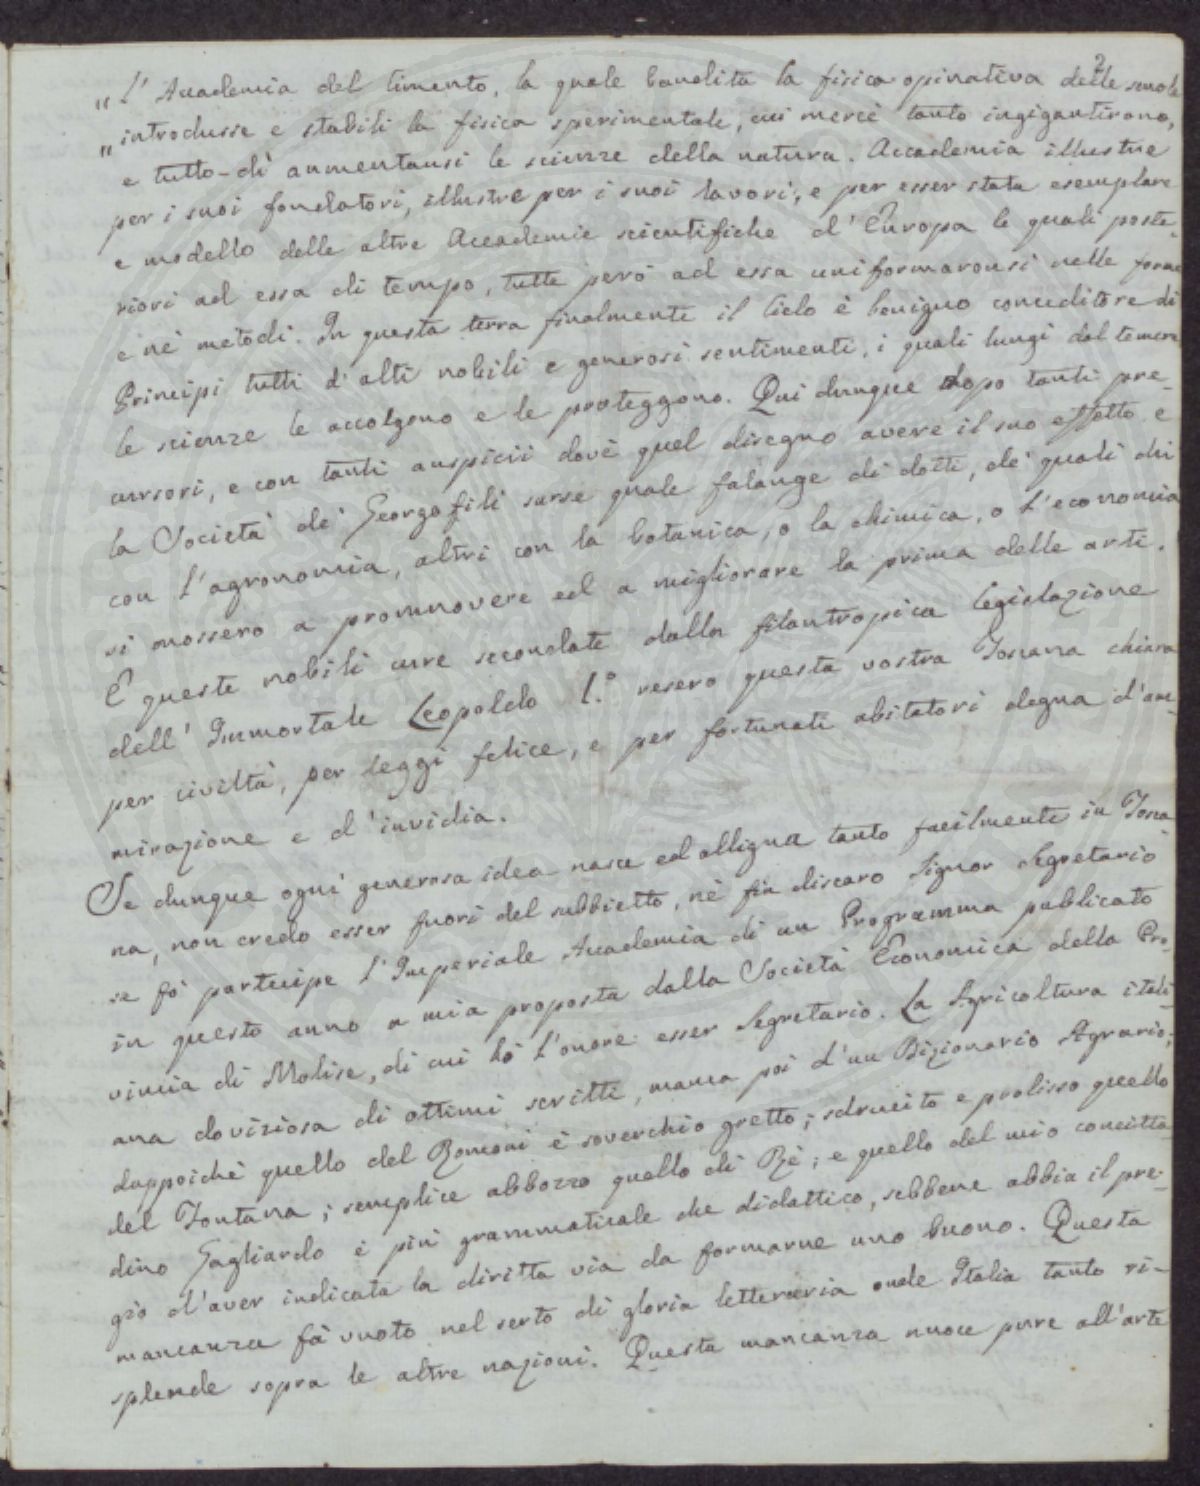 2
„ L'Accademia del Cimento, la quale bandita la fisica opinativa delle scuole
„ introdusse e stabilì la fisica sperimentale, cui mercè tanto ingigantirono,
e tutto-dì aumentansi le scienze della natura. Accademia illustre
per i suoi fondatori, illustre per i suoi lavori, e per esser stata esemplare
e modello delle altre Accademie scientifiche d'Europa le quali poste-
riori ad essa di tempo, tutte però ad essa uniformaronsi nelle forme
e nè metodi. In questa terra finalmente il Cielo è benigno conceditore di
Principi tutti d'alti nobili e generosi sentimenti, i quali lungi dal temere
le scienze le accolgono e le proteggono. Qui dunque dopo tanti pre-
cursori, e con tanti auspicii dovè quel disegno avere il suo effetto e
la Società de' Georgofili surse quale falange di dotti, de' quali chi
con l'agronomia, altri con la botanica, o la chimica, o l'economia
si mossero a promuovere ed a migliorare la prima delle arti.
E queste nobili cure secondate dalla filantropica legislazione
dell'Immortale Leopoldo I.° resero questa vostra Toscana chiara
per civiltà, per leggi felice, e per fortunati abitatori degna d'am-
mirazione e d'invidia.
Se dunque ogni generosa idea nasce ed alligna tanto facilmente in Tosca-
na, non credo esser fuori del subbietto, nè fia discaro Signor Segretario
se fò partecipe l'Imperiale Accademia di un Programma publicato
in questo anno a mia proposta dalla Società Economica della Pro-
vincia di Molise, di cui hò l'onore esser Segretario. La Agricoltura itali-
ana doviziosa di ottimi scritti, manca poi d'un Dizionario Agrario;
dappoichè quello del Ronconi è soverchio gretto; sdrucito e prolisso quello
del Fontana; semplice abbozzo quello di Rè; e quello del mio concitta-
dino Gagliardo è più grammaticale che didattico, sebbene abbia il pre-
gio d'aver indicata la diritta via da formarne uno buono. Questa
mancanza fà vuoto nel serto di gloria letteraria onde Italia tanto ri-
splende sopra le altre nazioni. Questa mancanza nuoce pure all'arte